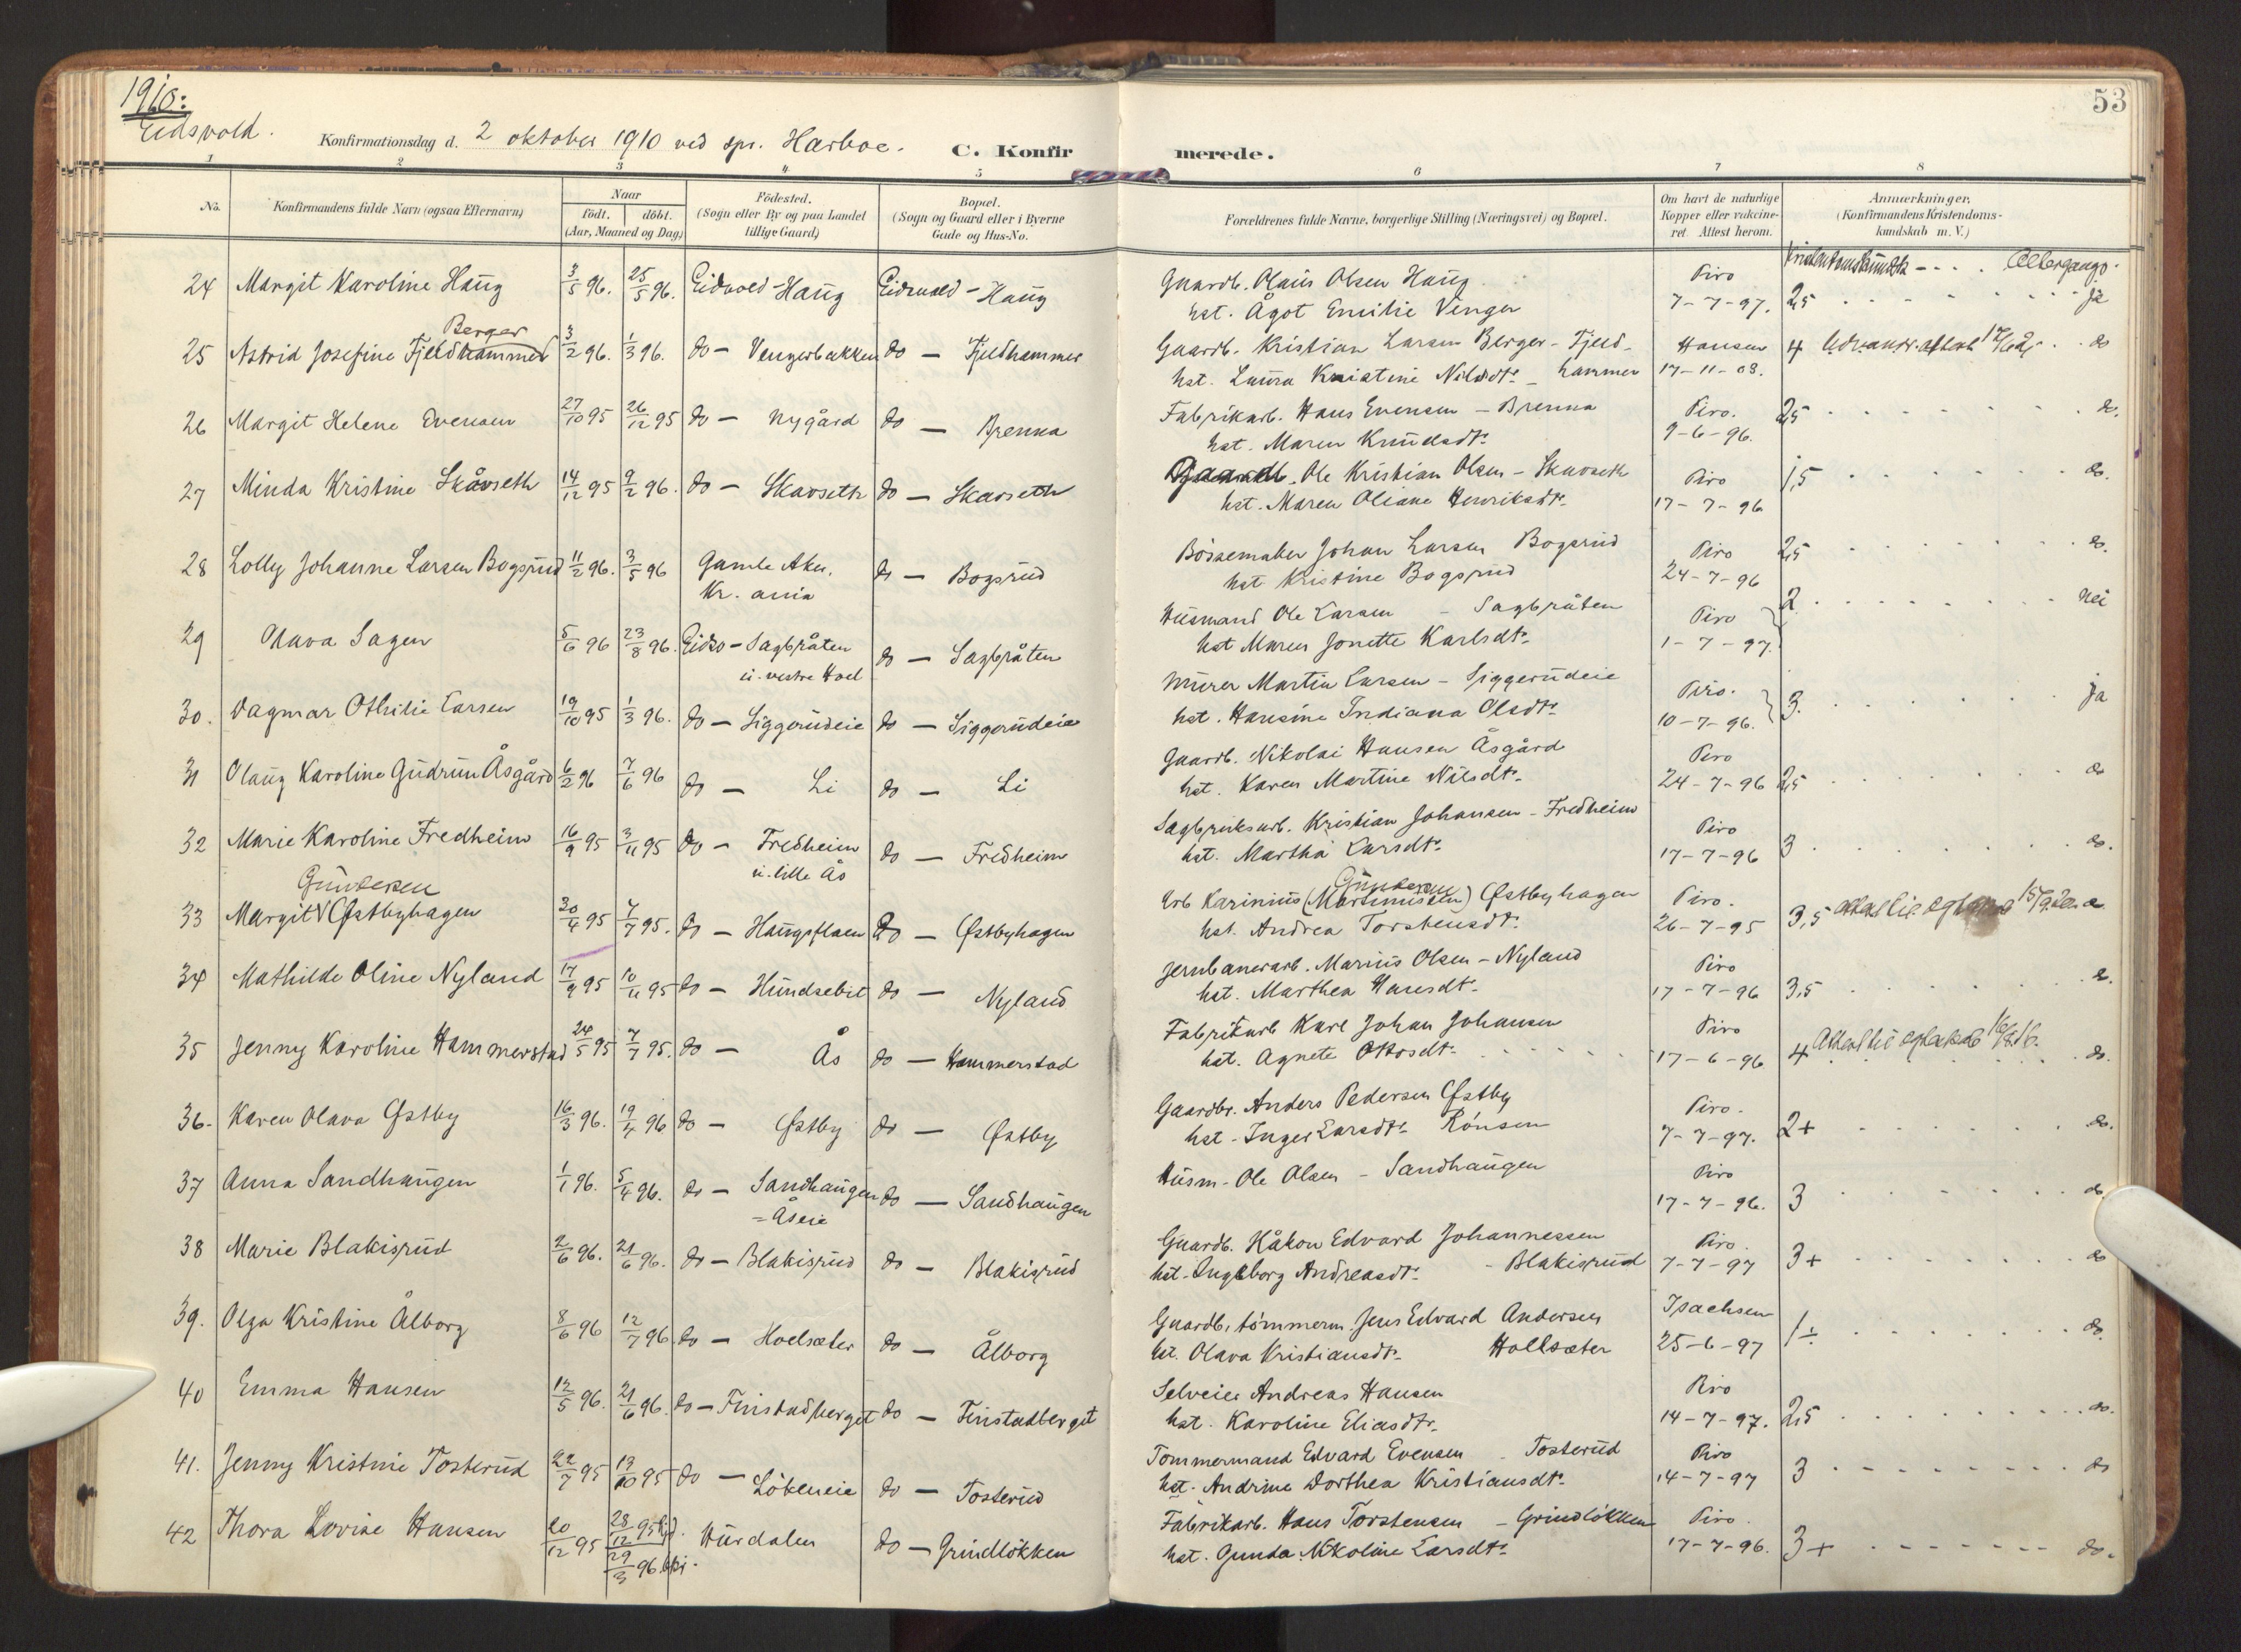 1910:
Eidsvold.
Konfirmationsdag d. 2 oktober 1910 ved spr. Harboe.
C. Konfirmerede.
53
1 2 3 4 5 6 7 8
No.
Konfirmandens fulde Navn (ogsaa Efternavn)
Naar
født. døbt.
(Aar, Maaned og Dag)
Fødested.
(Sogn eller By og paa Landet
tillige Gaard)
Bopæl.
(Sogn og Gaard eller i Byerne
Gade og Hus-No.
Forældrenes fulde Navne, borgerlige Stilling (Næringsvei) og Bopæl.
Om havt de naturlige
Kopper eller vakcine-
ret. Attest herom.
Anmærkninger.
(Konfirmandens Kristendoms-
kundskab m. V.)
Kristendomskundsk - - . .
24 Margit Karoline Haug 3/5 96. 25/5 96. Eidsvold - Haug Eidsvold - Haug Gaardb. Olaus Olsen Haug Piro
hst. Ågot Emilie Venger 7-7-97. 2,5 ja
Berger
25 Astrid Josefine Fjeldhammer 3/2 96. 1/3 96. do - Vengerbakken do - Fjeldhammer Gaardb. Kristian Larsen Berger - Fjeld- Hansen 4 do
hst. Laura Kristine Nilsdtr. hammer 17-11-03.
26 Margit Helene Evensen 27/10 95 26/12 95 do - Nygård do - Brenna Fabrikarb. Hans Evensen - Brenna Piro. 2,5 do.
hst. Maren Knudsdtr. 9-6-96.
27 Minda Kristine Skåvseth 14/12 95 9/2 96. do - Skavseth do - Skavseth Gaardb. Ole Kristian Olsen - Skavseth Piro 1,5 do.
hst. Maren Oliane Henriksdtr. 17-7-96
28 Lolly Johanne Larsen Bogsrud 11/2 96. 3/5 96 Gamle Aker, do - Bogsrud Bössemaker Johan Larsen Bogsrud Piro 2,5 do.
Kr. ania hst Kristine Bogsrud 24-7-96
29 Olava Sagen 5/6 96 23/8 96. Eidsv - Sagbråten do - Sagbråten Husmand Ole Larsen - Sagbråten Piro 2 nei
u. vestre Hoel hst Maren Jonette Karlsdtr. 1-7-97.
30. Dagmar Othilie Larsen 19/10 95 1/3 96. do - Siggerudeie do - Siggerudeie Murer Martin Larsen - Siggerudeie Piro. 3. ja
hst. Hansine Indiana Olsdtr. 10-7-96.
31 Olaug Karoline Gudrun Åsgård 6/2 96 7/6 96 do - Li do - Li Gaardb. Nikolai Hansen Åsgård Piro
hst. Karen Martine Nilsdtr. 24-7-96 2,5 do
32 Marie Karoline Fredheim 16/9 95 3/11 95 do - Fredheim do - Fredheim Sagbruksarb. Kristian Johansen - Fredheim Piro
u. lille Ås hst. Martha Larsdtr. 17-7-96 3 do.
Gundersen Gundersen
33 Margit V Østbyhagen 30/4 95 7/7 95. do - Haugsflaen do - Østbyhagen Arb Karinius (Martinusen) Østbyhagen Piro. 3,5
hst. Andrea Torstensdtr. 26-7-95
34 Mathilde Oline Nyland 17/9 95 10/11 95 do - Hundsebit do - Nyland Jernbanearb. Marius Olsen - Nyland Piro do.
hst. Marthea Hansdtr. 17-7-96 3,5
35 Jenny Karoline Hammerstad 24/5 95 7/7 95. do - Ås do - Hammerstad Fabrikarb Karl Johan Johansen Piro
hst. Agnete Ottosdtr. 17-6-96 4 do.
36. Karen Olava Østby 16/3 96. 19/4 96 do - Østby do - Østby Gaardbr. Anders Pedersen Østby Piro.
hst. Inger Larsdtr. Rönsen 7-7-97. 2+ do.
37 Anna Sandhaugen 1/1 96. 5/4 96. do - Sandhaugen do - Sandhaugen Husm. Ole Olsen - Sandhaugen Piro
= Åseie 17-7-96. 3 do
38 Marie Blakisrud 2/6 96. 21/6 96. do - Blakisrud do - Blakisrud Gaardb. Håkon Edvard Johannessen Piro.
hst. Ingeborg Andreasdtr. - Blakisrud 7-7-97 3+ do
39. Olga Kristine Ålborg 8/6 96 12/7 96. do - Hoelsæter do - Ålborg Gaardb, tömmerm. Jens Edvard Andersen Isachsen
hst. Olava Kristiansdtr. Hollsæter 25-6-97 1÷ do.
40 Emma Hansen 12/5 96. 21/6 96. do - Finstadberget do - Finstadberget Selveier Andreas Hansen Piro
hst. Karoline Eliasdtr. 14-7-97. 2,5 do.
41. Jenny Kristine Tosterud 22/7 95 13/10 95 do - Lökeneie do - Tosterud Tømmermand Edvard Evensen - Tosterud Piro
hst. Andrine Dorthea Kristiansdtr. 14-7-97 3 do
42 Thora Lovise Hansen 20/12 95 28/12 95 Hurdalen do - Grindlökken Fabrikarb. Hans Torstensen - Grindlökken Piro.
29/3 96. hst. Gunda Nikoline Larsdtr. 17-7-96. 3+ do.